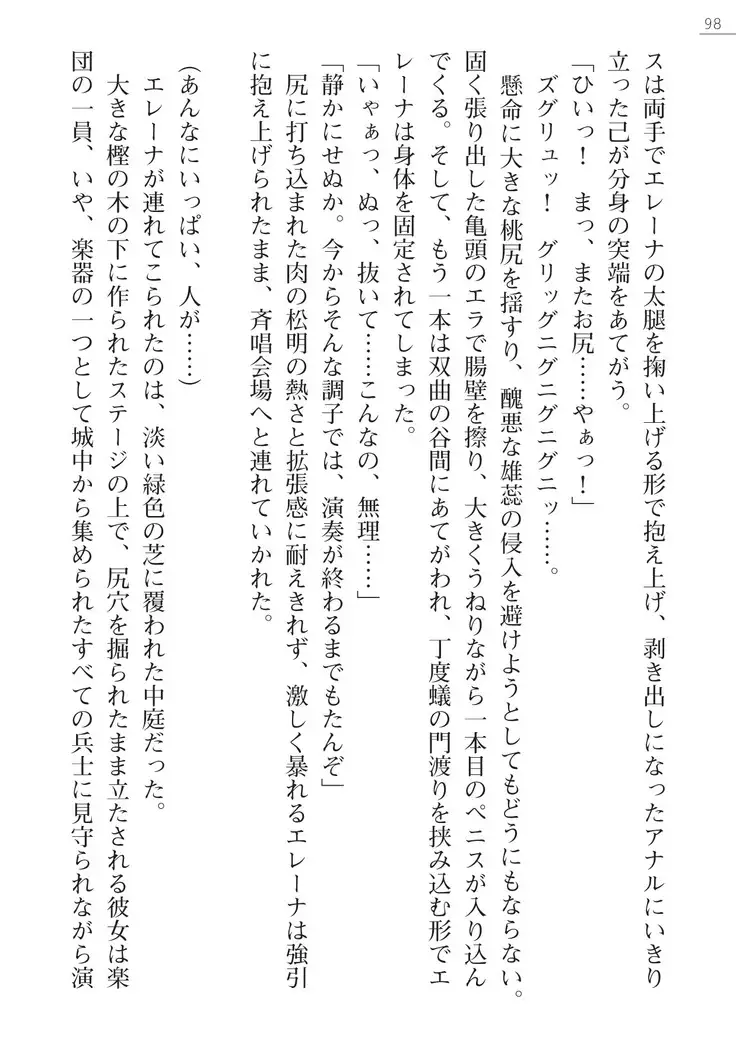 98
スは両手でエレーナの太腿を掬い上げる形で抱え上げ、剥き出しになったアナルにいきり
立った己が分身の突端をあてがう。
「ひいっ！　まっ、またお尻……やぁっ！」
ズグリュッ！　グリッグニグニグニグニッ……。
懸命に大きな桃尻を揺すり、醜悪な雄蕊の侵入を避けようとしてもどうにもならない。
固く張り出した亀頭のエラで腸壁を擦り、大きくうねりながら一本目のペニスが入り込ん
でくる。そして、もう一本は双曲の谷間にあてがわれ、丁度蟻の門渡りを挟み込む形でエ
レーナは身体を固定されてしまった。
「いゃぁっ、ぬっ、抜いて……こんなの、無理……」
「静かにせぬか。今からそんな調子では、演奏が終わるまでもたんぞ」
尻に打ち込まれた肉の松明の熱さと拡張感に耐えきれず、激しく暴れるエレーナは強引
に抱え上げられたまま、斉唱会場へと連れていかれた。
（あんなにいっぱい、人が……）
エレーナが連れてこられたのは、淡い緑色の芝に覆われた中庭だった。
大きな樫の木の下に作られたステージの上で、尻穴を掘られたまま立たされる彼女は楽
団の一員、いや、楽器の一つとして城中から集められたすべての兵士に見守られながら演